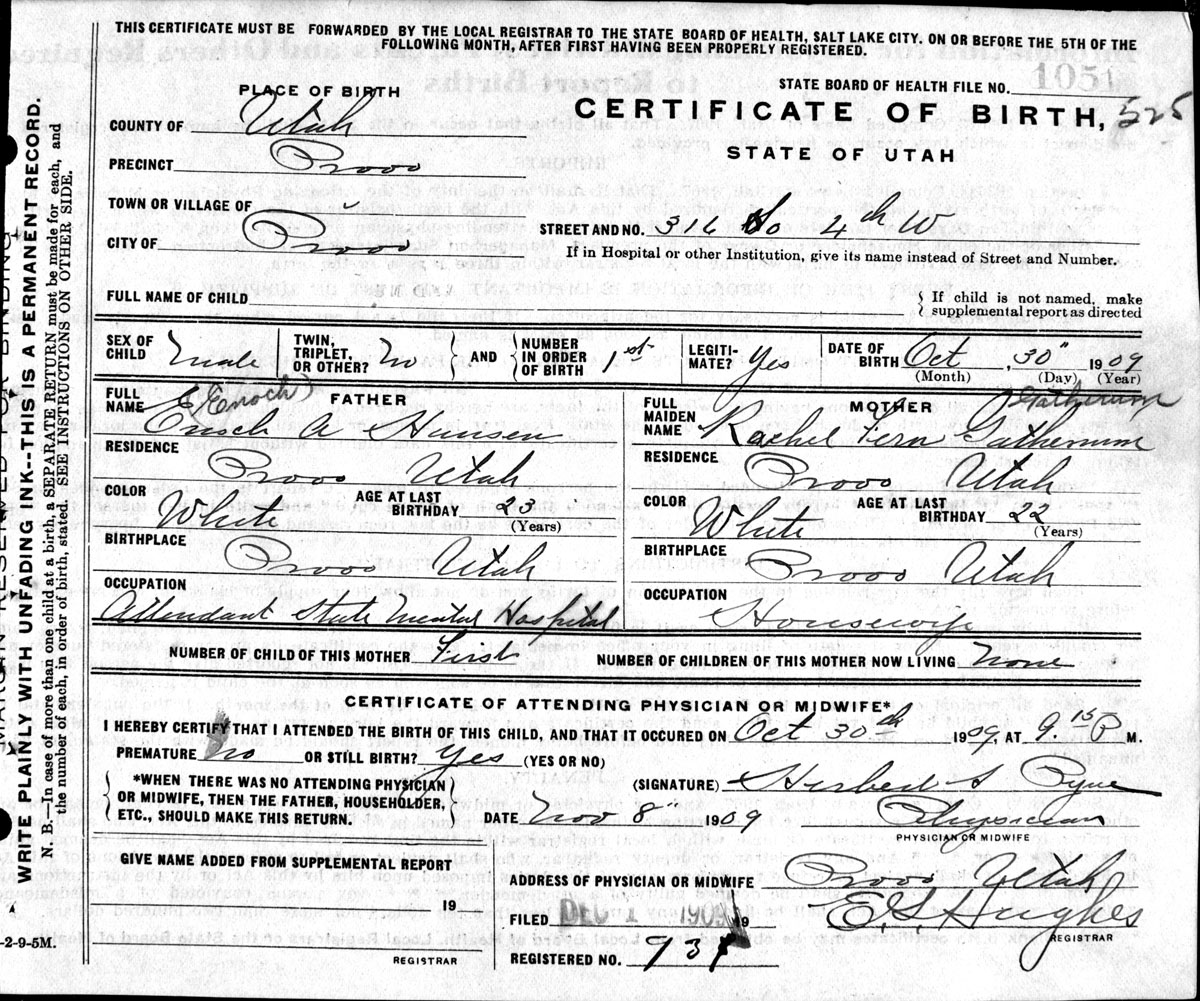 THIS CERTIFICATE MUST BE FORWARDED BY THE LOCAL REGISTRAR TO THE STATE BOARD OF HEALTH, SALT LAKE CITY. ON OR BEFORE THE 5TH OF THE
FOLLOWING MONTH, AFTER FIRST HAVING BEEN PROPERLY REGISTERED.
STATE BOARD OF HEALTH FILE NO. 1051
PLACE OF BIRTH
CERTIFICATE OF BIRTH, 525
STATE OF UTAH
COUNTY OF Utah
PRECINCT Provo
TOWN OR VILLAGE OF
CITY OF Provo
STREET AND NO. 316 So 4th W
If in Hospital or other Institution, give its name instead of Street and Number.
FULL NAME OF CHILD
If child is not named, make
supplemental report as directed
SEX OF CHILD male TWIN, TRIPLET, OR OTHER? no AND NUMBER IN ORDER OF BIRTH 1st LEGITIMATE? Yes DATE OF BIRTH Oct, 30" 1909
(Month) (Day) (Year)
FATHER
FULL NAME (Enoch) Enoch A Hansen
RESIDENCE Provo Utah
COLOR White AGE AT LAST BIRTHDAY 23 (Years)
BIRTHPLACE Provo Utah
OCCUPATION
Attendant State Mental Hospital
MOTHER
FULL MAIDEN NAME Rachel Fern
RESIDENCE Provo Utah
COLOR White AGE AT LAST BIRTHDAY 22 (Years)
BIRTHPLACE Provo Utah
OCCUPATION Housewife
NUMBER OF CHILD OF THIS MOTHER First NUMBER OF CHILDREN OF THIS MOTHER NOW LIVING None
CERTIFICATE OF ATTENDING PHYSICIAN OR MIDWIFE*
I HEREBY CERTIFY THAT I ATTENDED THE BIRTH OF THIS CHILD, AND THAT IT OCCURED ON Oct 30th 1909, AT 9.15 P M.
PREMATURE No OR STILL BIRTH? Yes (YES OR NO)
*WHEN THERE WAS NO ATTENDING PHYSICIAN
OR MIDWIFE, THEN THE FATHER, HOUSEHOLDER,
ETC., SHOULD MAKE THIS RETURN.
(SIGNATURE) Herbert S Pyne
DATE Nov 8 1909 Physician
PHYSICIAN OR MIDWIFE
GIVE NAME ADDED FROM SUPPLEMENTAL REPORT
19
REGISTRAR
ADDRESS OF PHYSICIAN OR MIDWIFE Provo Utah
FILED DEC 1 1909 19 E. G. Hughes
REGISTRAR
REGISTERED NO. 931
WRITE PLAINLY WITH UNFADING INK--THIS IS A PERMANENT RECORD.
N. B.—In case of more than one child at a birth, a SEPARATE RETURN must be made for each, and
the number of each, in order of birth, stated. SEE INSTRUCTIONS ON OTHER SIDE.
-2-9-5M.